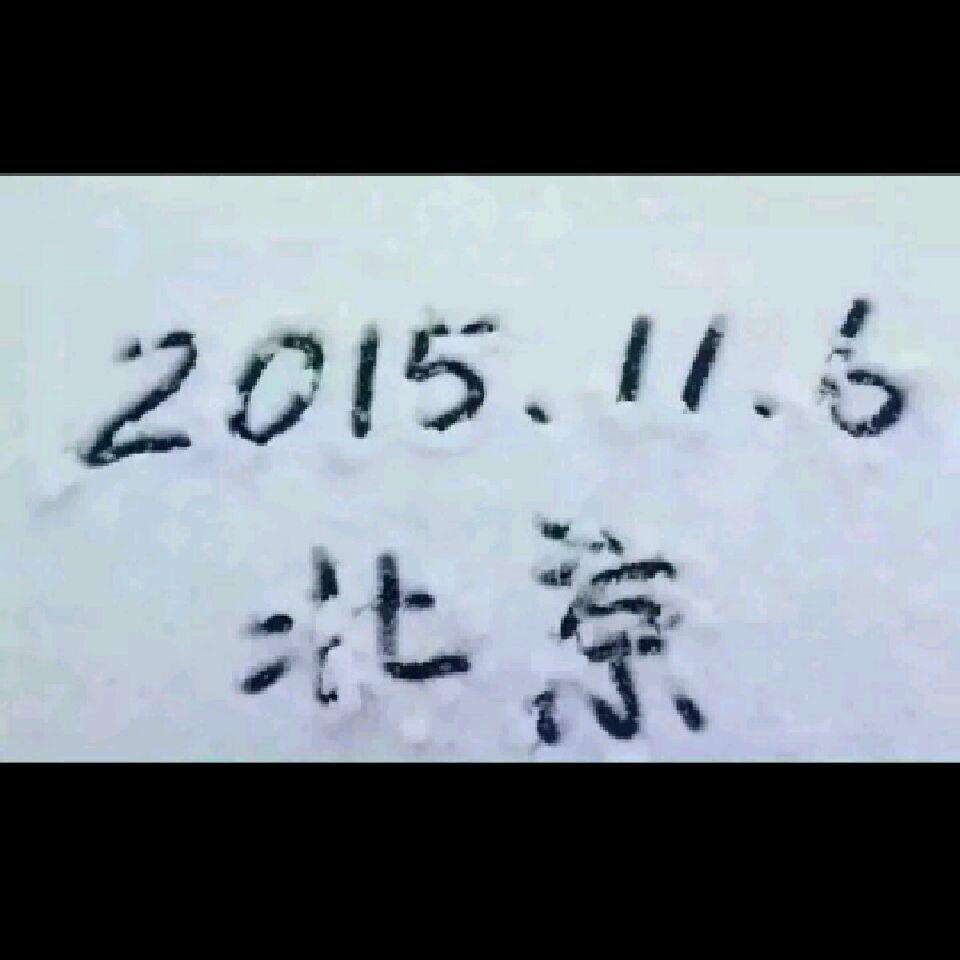 2015.11.6
北京